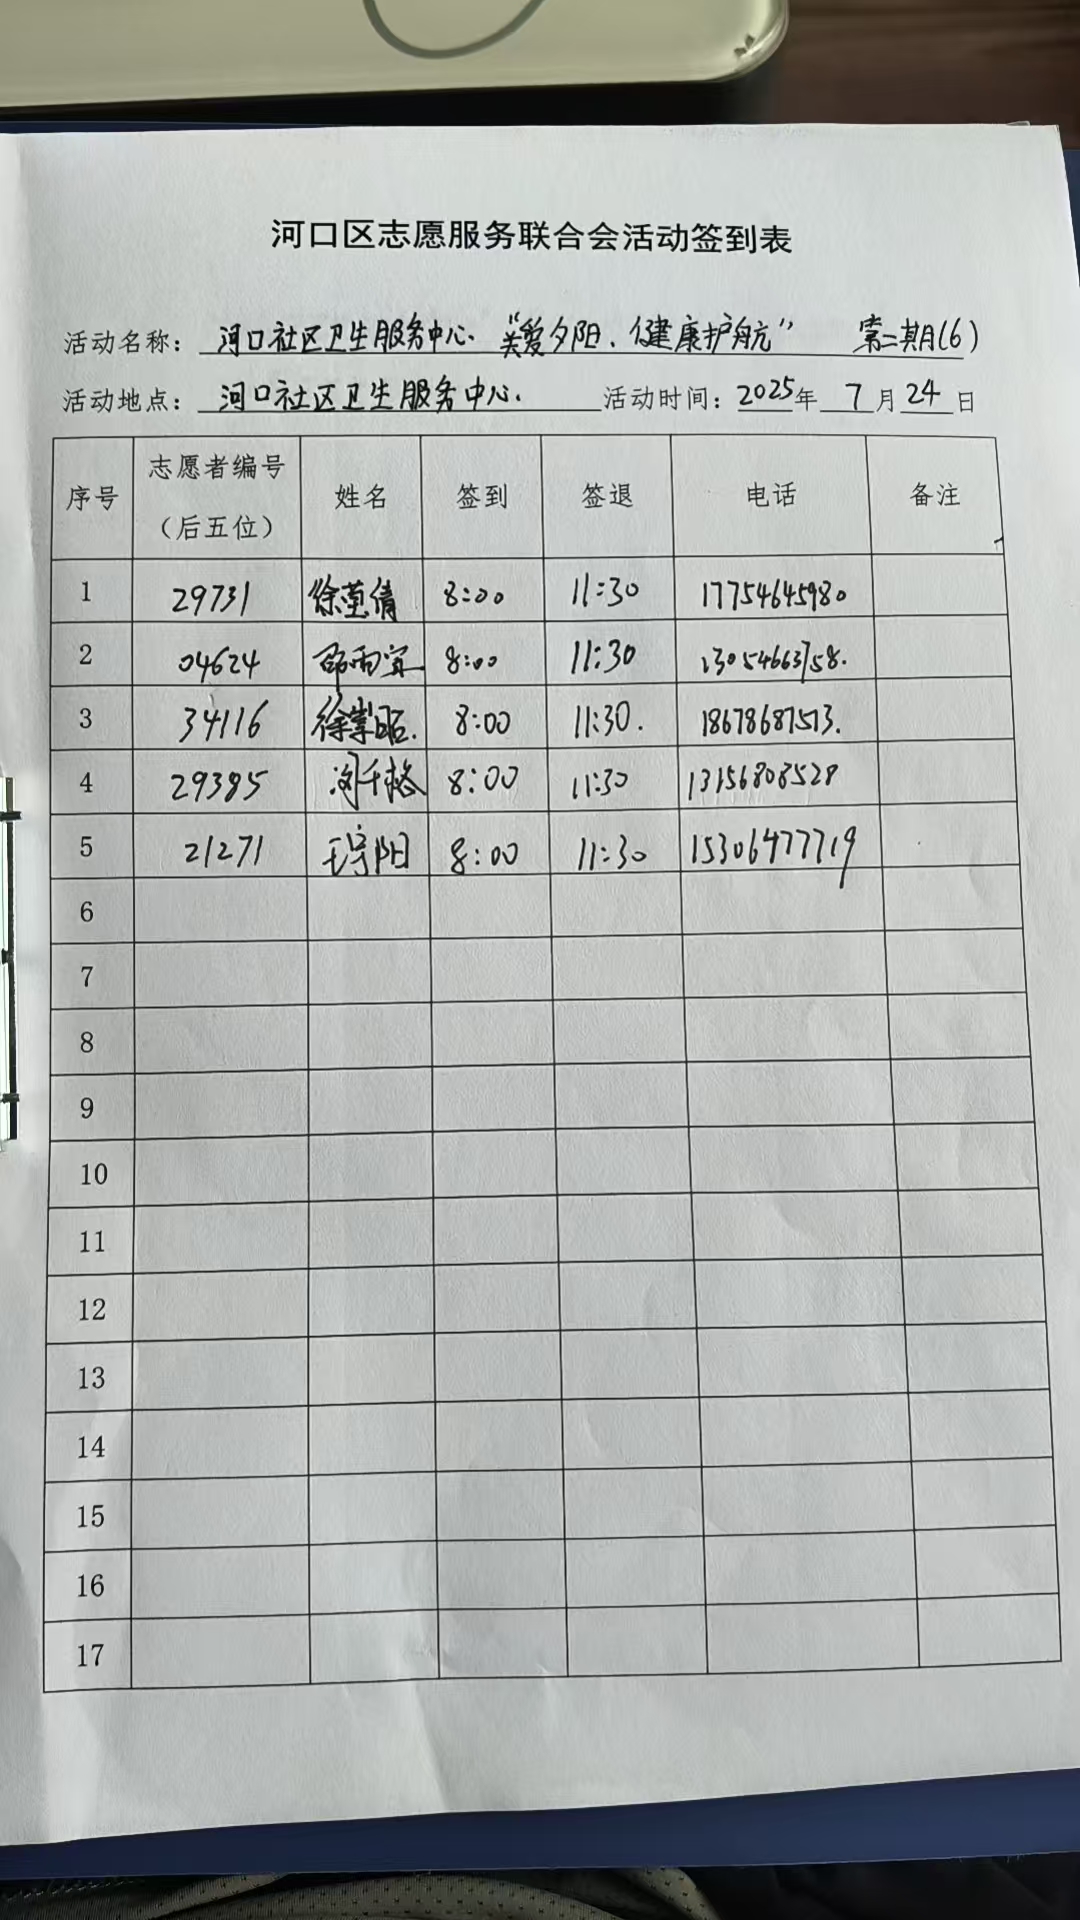 河口区志愿服务联合会活动签到表
活动名称：河口社区卫生服务中心."关爱夕阳.健康护航" 第二期(6)
活动地点：河口社区卫生服务中心. 活动时间：2025年 7 月 24 日
序号 志愿者编号（后五位） 姓名 签到 签退 电话 备注
1 29731 徐堇倩 8:00 11:30 17754645980
2 04624 邵雨宜 8:00 11:30 13054663758.
3 34116 徐崇昭. 8:00 11:30. 18678687513.
4 29385 8:00 11:30 13156808528
5 21271 王宇阳 8:00 11:30 15306477719
6
7
8
9
10
11
12
13
14
15
16
17